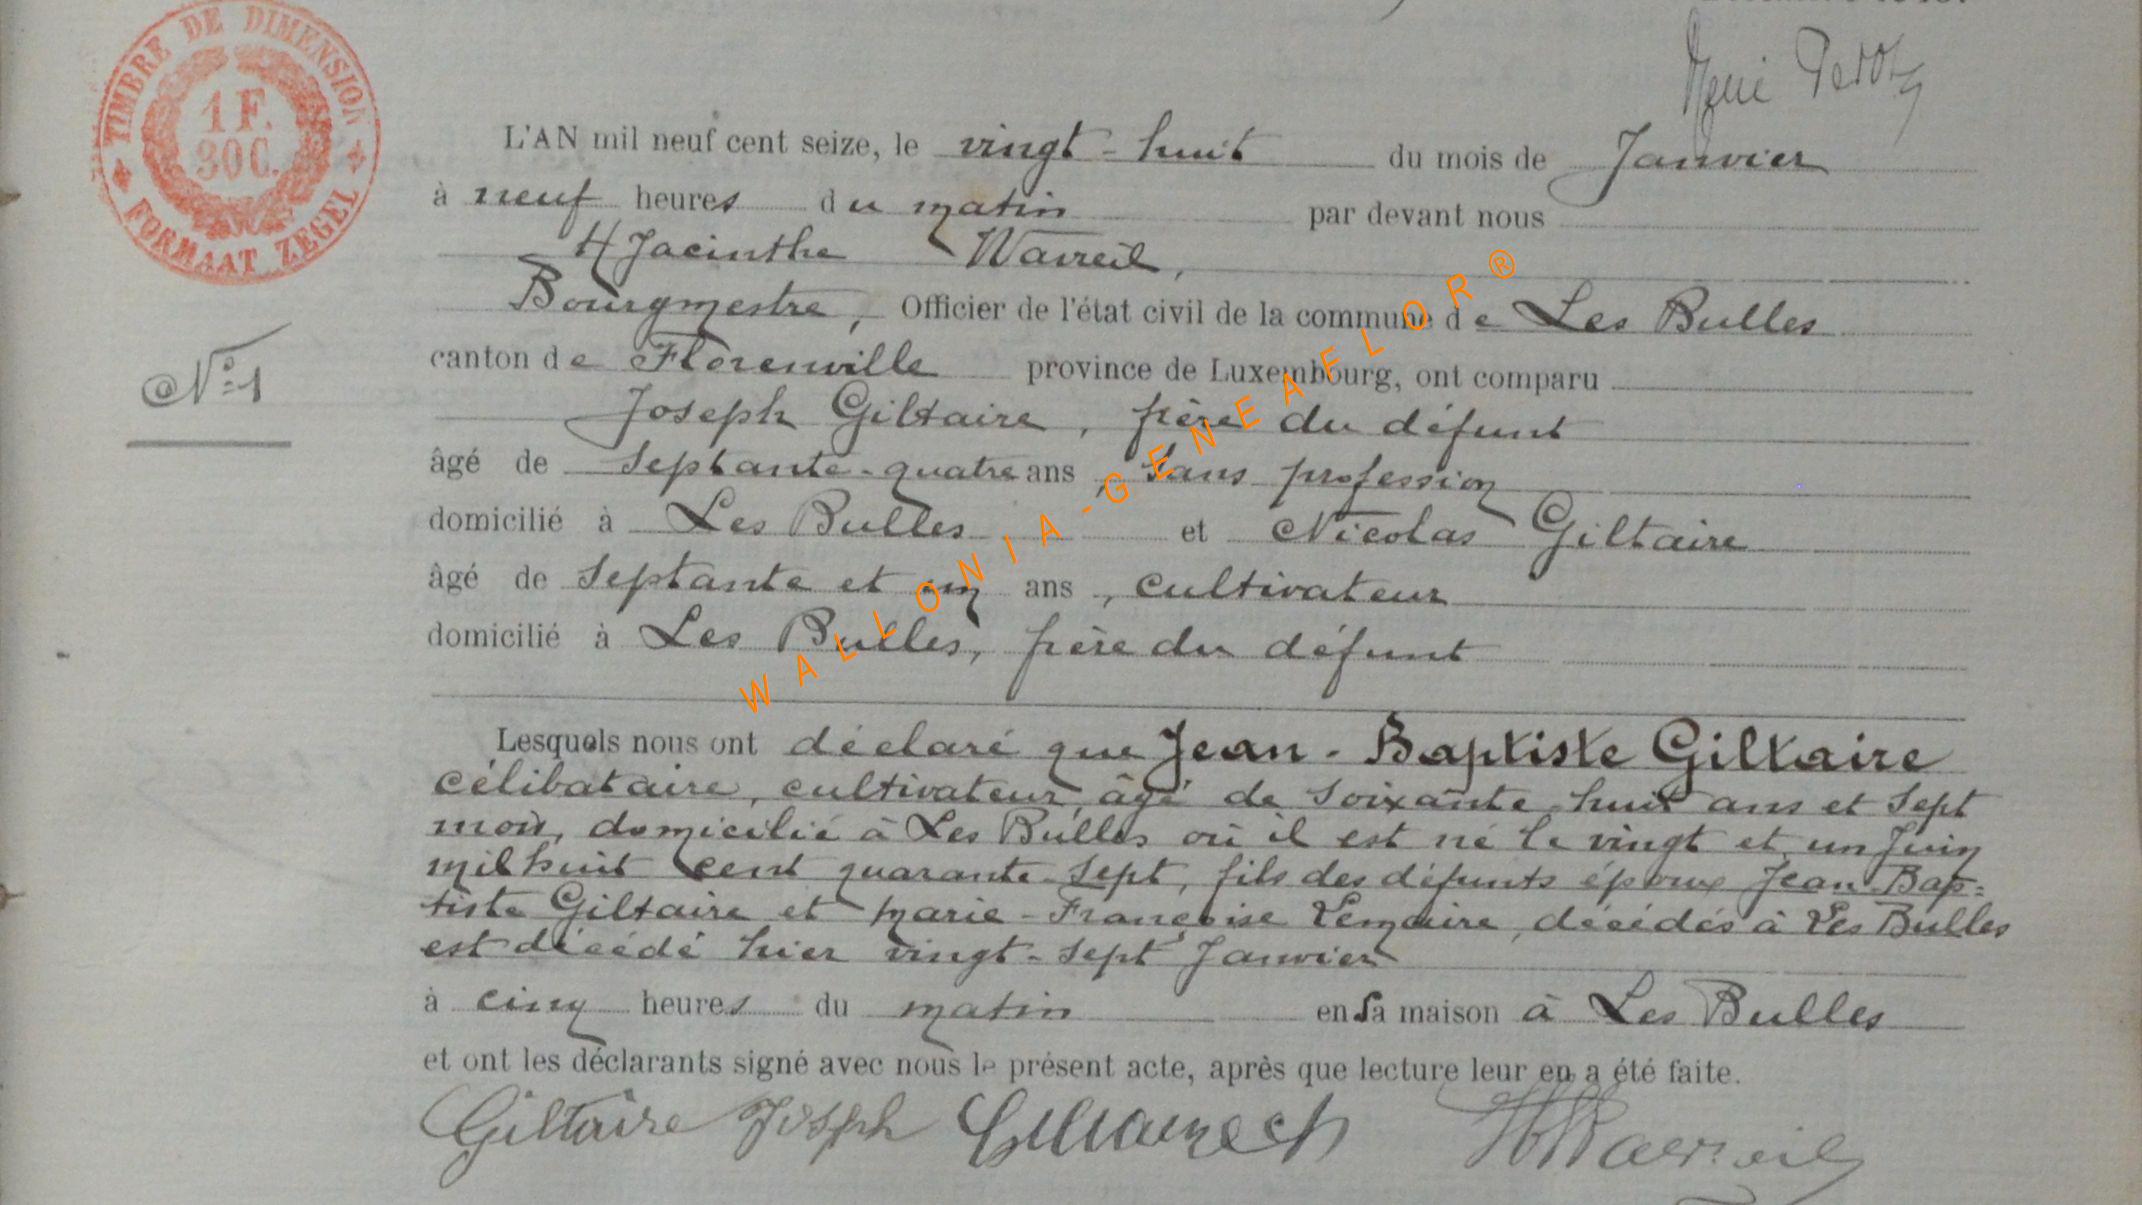 TIMBRE DE DIMENSION
1 F.
30 C.
FORMAAT ZEGEL
L'AN mil neuf cent seize, le vingt-huit du mois de Janvier
à neuf heures du matin par devant nous
Hyacinthe
Bourgmestre, Officier de l'état civil de la commune de Les Bulles
N° 1
canton de Florenville province de Luxembourg, ont comparu
Joseph Giltaire, frère du défunt
âgé de septante-quatre ans, sans profession
domicilié à Les Bulles et Nicolas Giltaire
âgé de septante et un ans, cultivateur
domicilié à Les Bulles, frère du défunt
Lesquels nous ont déclaré que Jean-Baptiste Giltaire
célibataire, cultivateur, âgé de soixante-huit ans et sept
mois, domicilié à Les Bulles où il est né le vingt et un Juin
mil huit cent quarante-sept, fils des défunts époux Jean-Bap=
tiste Giltaire et Marie-Françoise Lemaire, décédés à Les Bulles
est décédé hier vingt-sept Janvier
à cinq heures du matin en sa maison à Les Bulles
et ont les déclarants signé avec nous le présent acte, après que lecture leur en a été faite.
Giltaire Joseph
WALLONIA-GENEAFLOR®